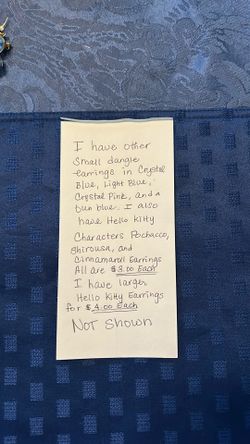 I have other
small dangle
earrings in Crystal
Blue, Light Blue,
Crystal Pink, and a
Dun blue. I also
have Hello Kitty
Characters Pochacco,
Shirousa, and
Cinnamaroll Earrings
All are $3.00 Each
I have larger
Hello Kitty Earrings
for $4.00 Each
Not Shown